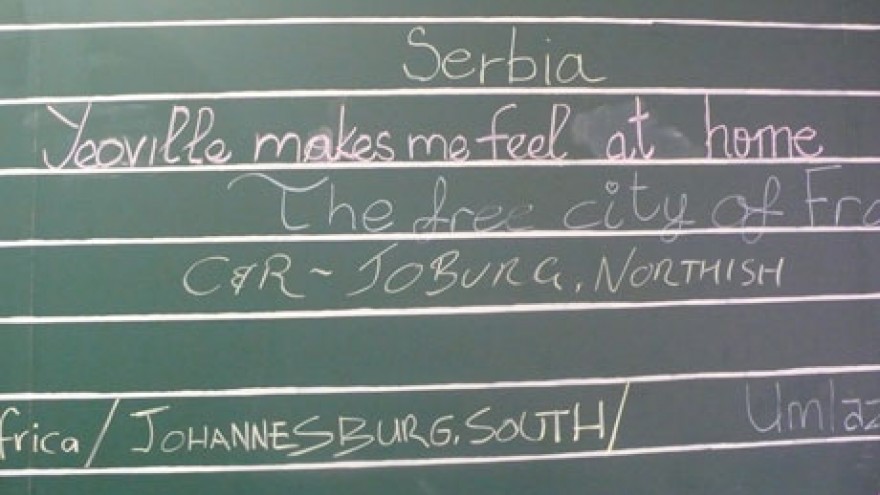 Serbia
Yeoville makes me feel at home
The free city of Fra
C&R ~ JOBURG, NORTHISH
frica / JOHANNESBURG, SOUTH / Umlaz